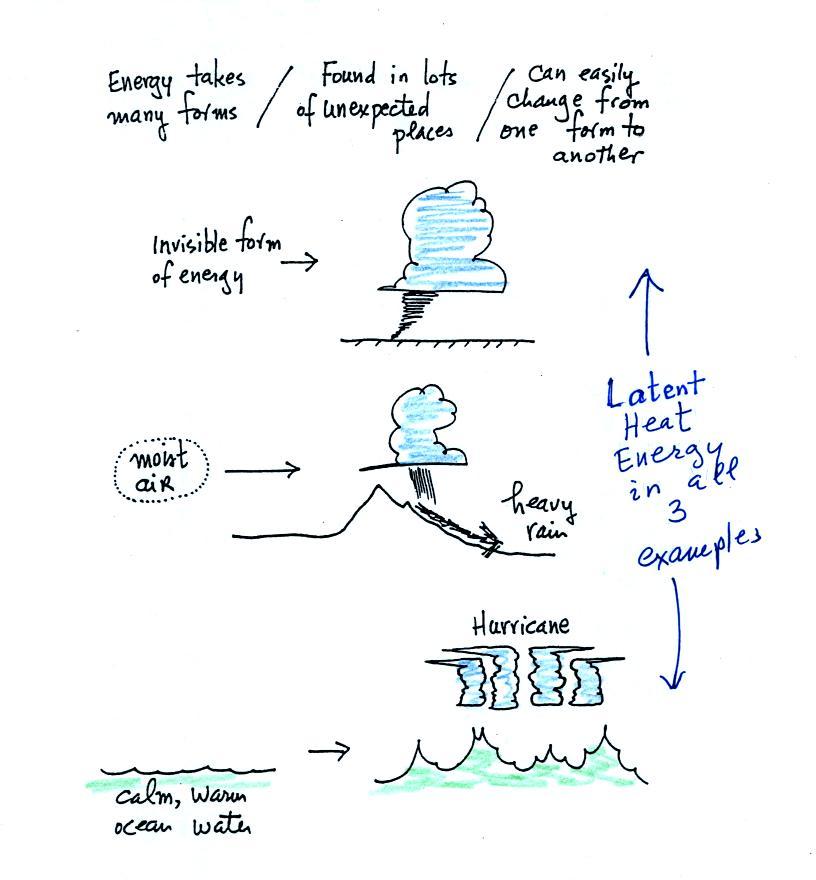 Energy takes
many forms
/
Found in lots
of unexpected
places
/
can easily
change from
one form to
another
Invisible form
of energy
moist
air
heavy
rain
Latent
Heat
Energy
in all
3
examples
Hurricane
calm, warm
ocean water